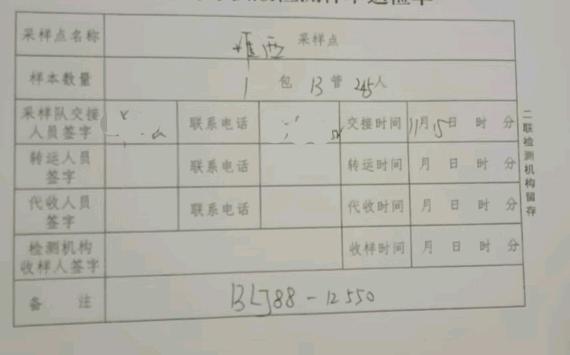 采样点名称 雁西 采样点
样本数量 1 包 13 管 245人
采样队交接人员签字 联系电话 交接时间 11月15日 时 分
转运人员签字 联系电话 转运时间 月 日 时 分
代收人员签字 联系电话 代收时间 月 日 时 分
检测机构收样人签字 收样时间 月 日 时 分
备 注 BLJ88-12550
二联检测机构留存